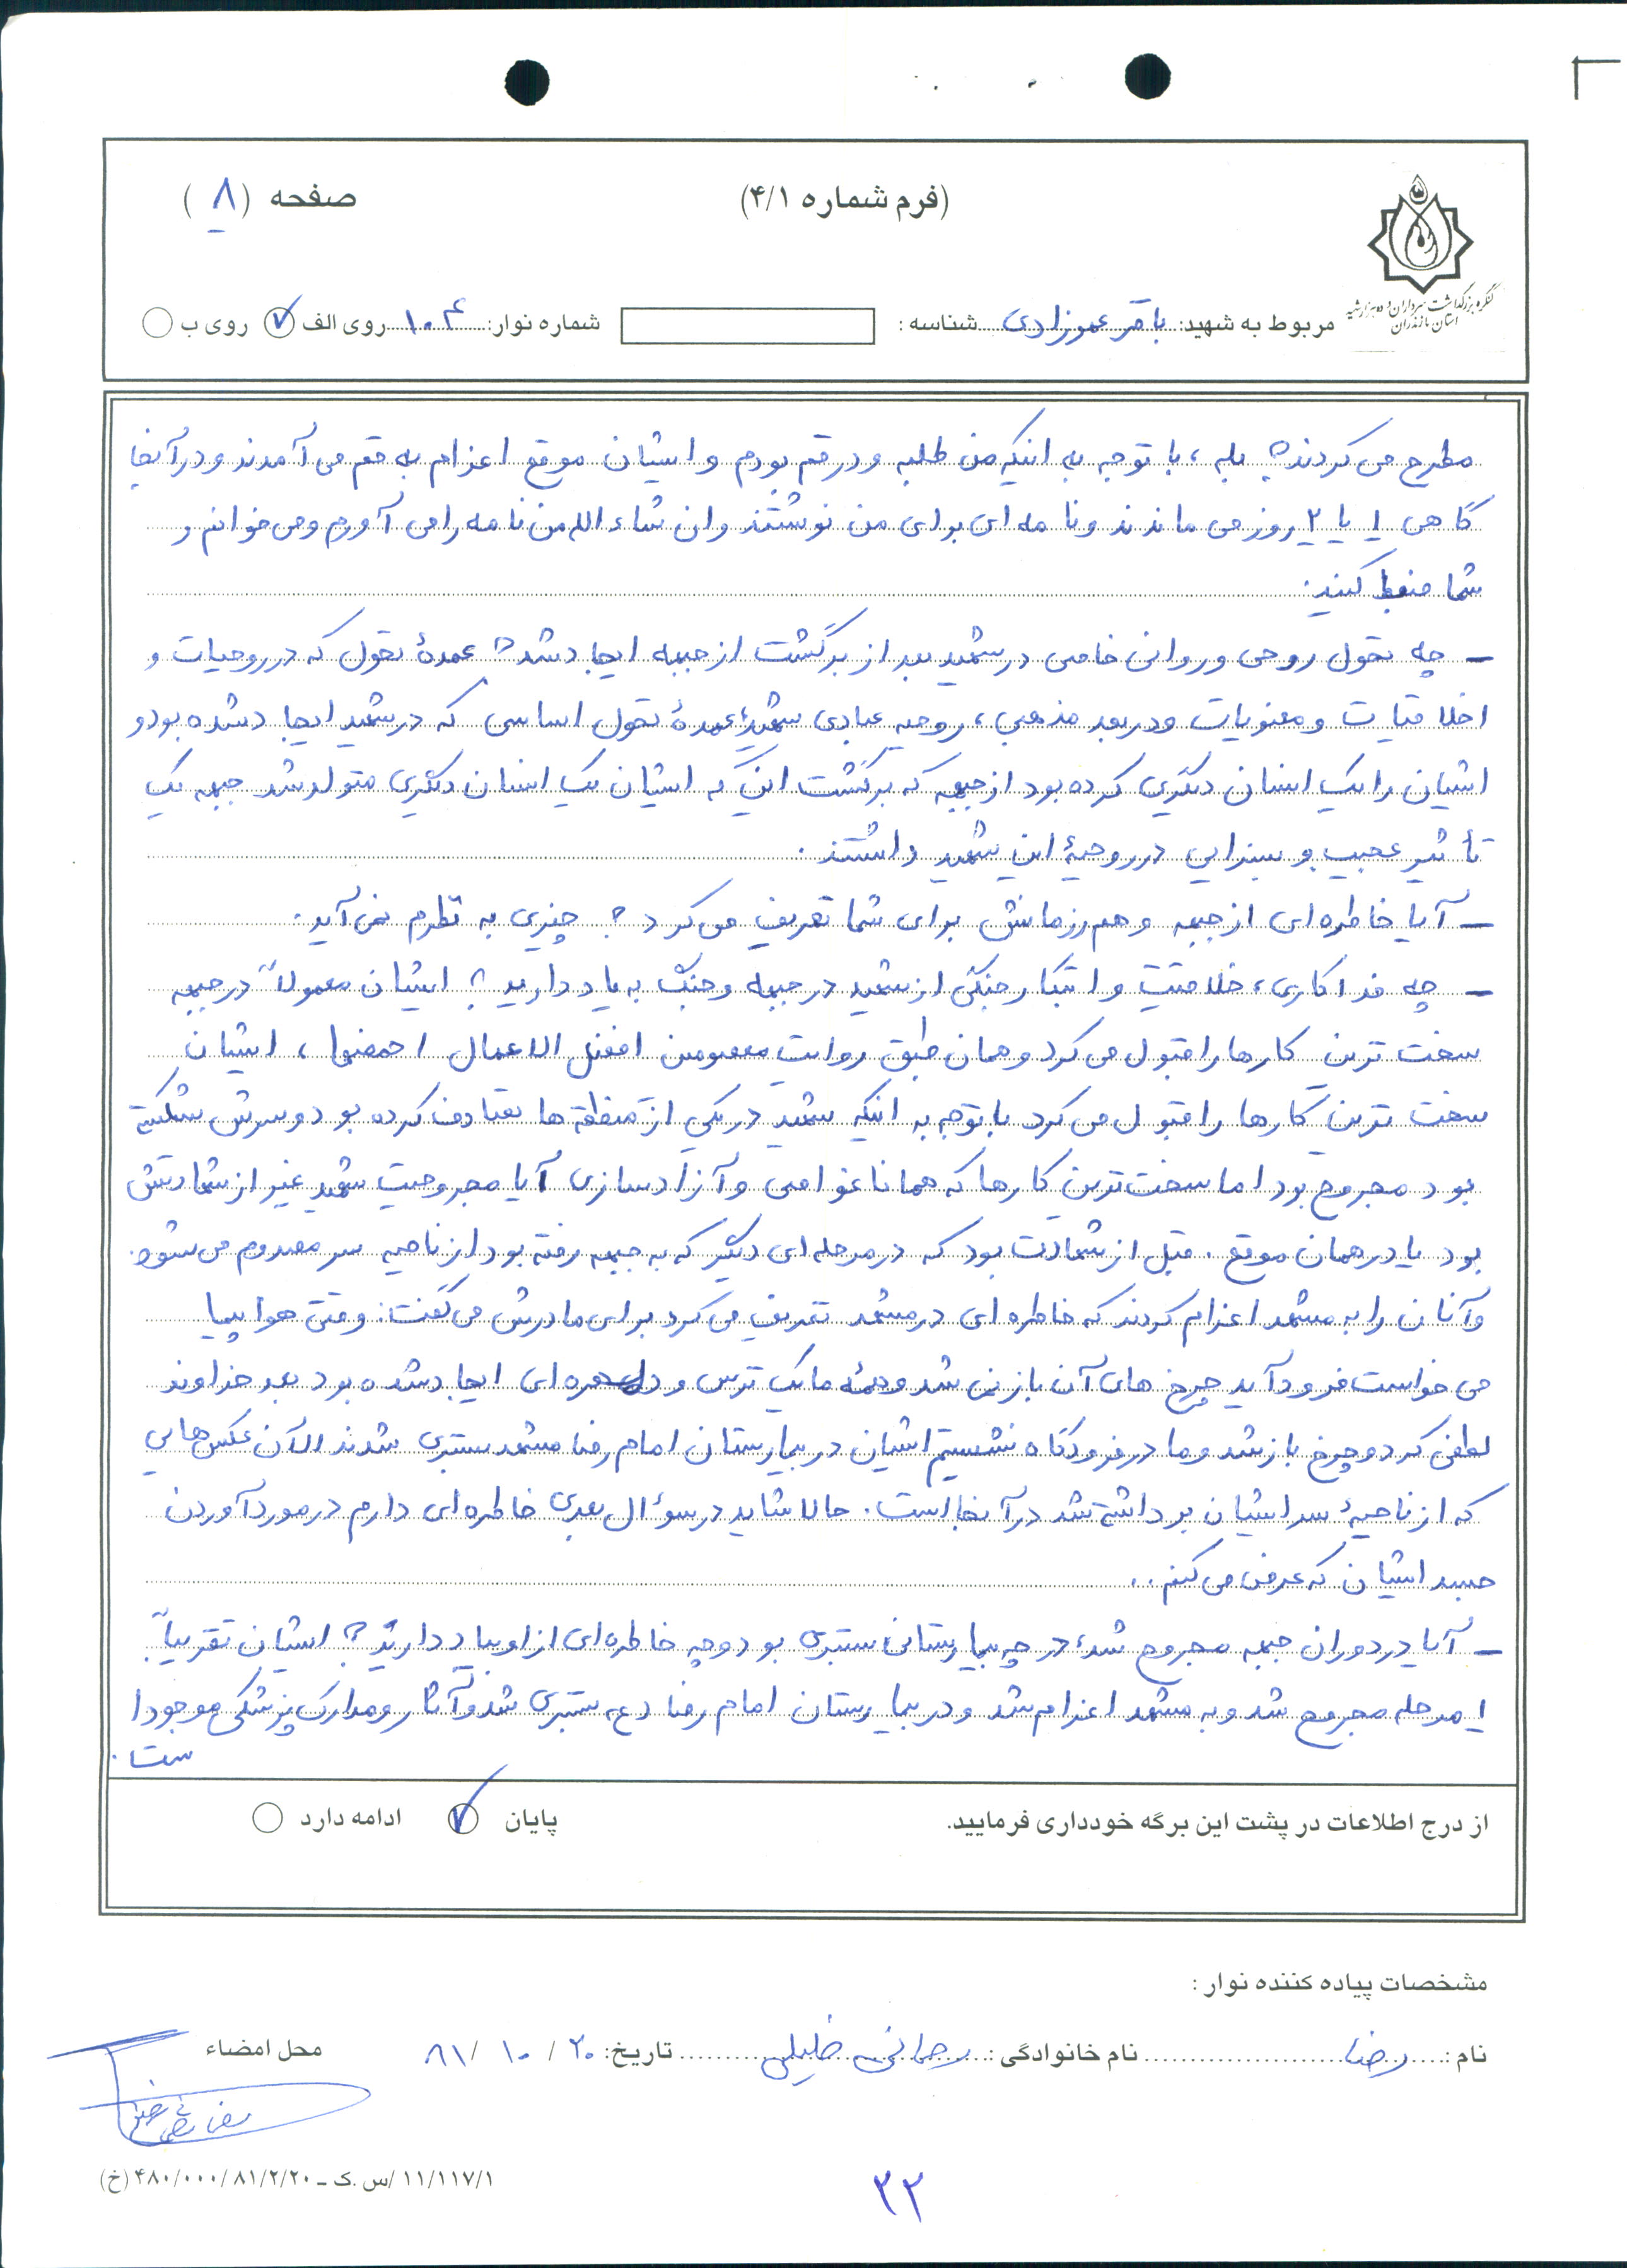 (فرم شماره ۴/۱)
صفحه (۸)
کنگره بزرگداشت سرداران و ده هزار شهید
استان مازندران
مربوط به شهید: باقر عموزادی شناسه : شماره نوار: ۱۰۴ روی الف روی ب
مطرح می کردند؟ بله ، با توجه به اینکه من طلبه و در قم بودم و ایشان موقع اعزام به قم می آمدند و در آنجا
گاهی ۱ یا ۲ روز می ماندند و نامه ای برای من نوشتند و ان شاء الله من نامه را می آورم و می خوانم و
شما ضبط کنید.
– چه تحول روحی و روانی خاصی در شهید بعد از برگشت از جبهه ایجاد شد؟ عمدهٔ تحول که در روحیات و
اخلاقیات و معنویات و در بعد مذهبی ، روحیه عبادی شهید، عمدهٔ تحول اساسی که در شهید ایجاد شده بود و
ایشان را یک انسان دیگری کرده بود از جبهه که برگشت این که ایشان یک انسان دیگری متولد شد جبهه یک
تأثیر عجیب و بسزایی در روحیهٔ این شهید داشتند .
– آیا خاطره ای از جبهه و هم رزمانش برای شما تعریف می کرد ؟ چیزی به نظرم نمی آید.
– چه فداکاری ، خلاقیت و ابتکار جنگی از شهید در جبهه و جنگ به یاد دارید ؟ ایشان معمولاً در جبهه
سخت ترین کارها را قبول می کرد و همان طبق روایت معصومین افضل الاعمال احمضها ، ایشان
سخت ترین کارها را قبول می کرد با توجه به اینکه شهید در یکی از منطقه ها تصادف کرده بود و سرش شکسته
بود مجروح بود اما سخت ترین کارها که همانا غواصی و آزادسازی آیا مجروحیت شهید غیر از شهادتش
بود یا در همان موقع . قبل از شهادت بود که در مرحله ای دیگر که به جبهه رفته بود از ناحیه سر مصدوم می شود
و آنان را به مشهد اعزام کردند که خاطره ای در مشهد تعریف می کرد برای مادرش می گفت: وقتی هواپیما
می خواست فرود آید چرخ های آن باز نمی شد و همهٔ ما یک ترس و دلهره ای ایجاد شده بود بعد خداوند
لطفی کرد و چرخ باز شد و ما در فرودگاه نشستیم ایشان در بیمارستان امام رضا مشهد بستری شدند الآن عکس هایی
که از ناحیهٔ سر ایشان برداشته شد در آنجا است . حالا شاید در سؤال بعدی خاطره ای دارم در مورد آوردن
جسد ایشان که عرض می کنم ..
– آیا در دوران جبهه مجروح شد، در چه بیمارستانی بستری بود و چه خاطره ای از او بیاد دارید ؟ ایشان تقریباً
۱ مرحله مجروح شد و به مشهد اعزام شد و در بیمارستان امام رضا (ع) بستری شد و آثار و مدارک پزشکی موجود ا
ست .
از درج اطلاعات در پشت این برگه خودداری فرمایید. پایان ادامه دارد
مشخصات پیاده کننده نوار :
نام : رضا نام خانوادگی : رحمانی خلیلی تاریخ: ۲۰ / ۱۰ / ۸۱ محل امضاء
۱۱/۱۱۷/۱ /س .ک ـ ۴۸۰/۰۰۰/۸۱/۲/۲۰ (خ)
۳۳